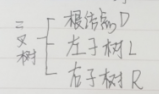 二叉树
根结点 D
左子树 L
右子树 R